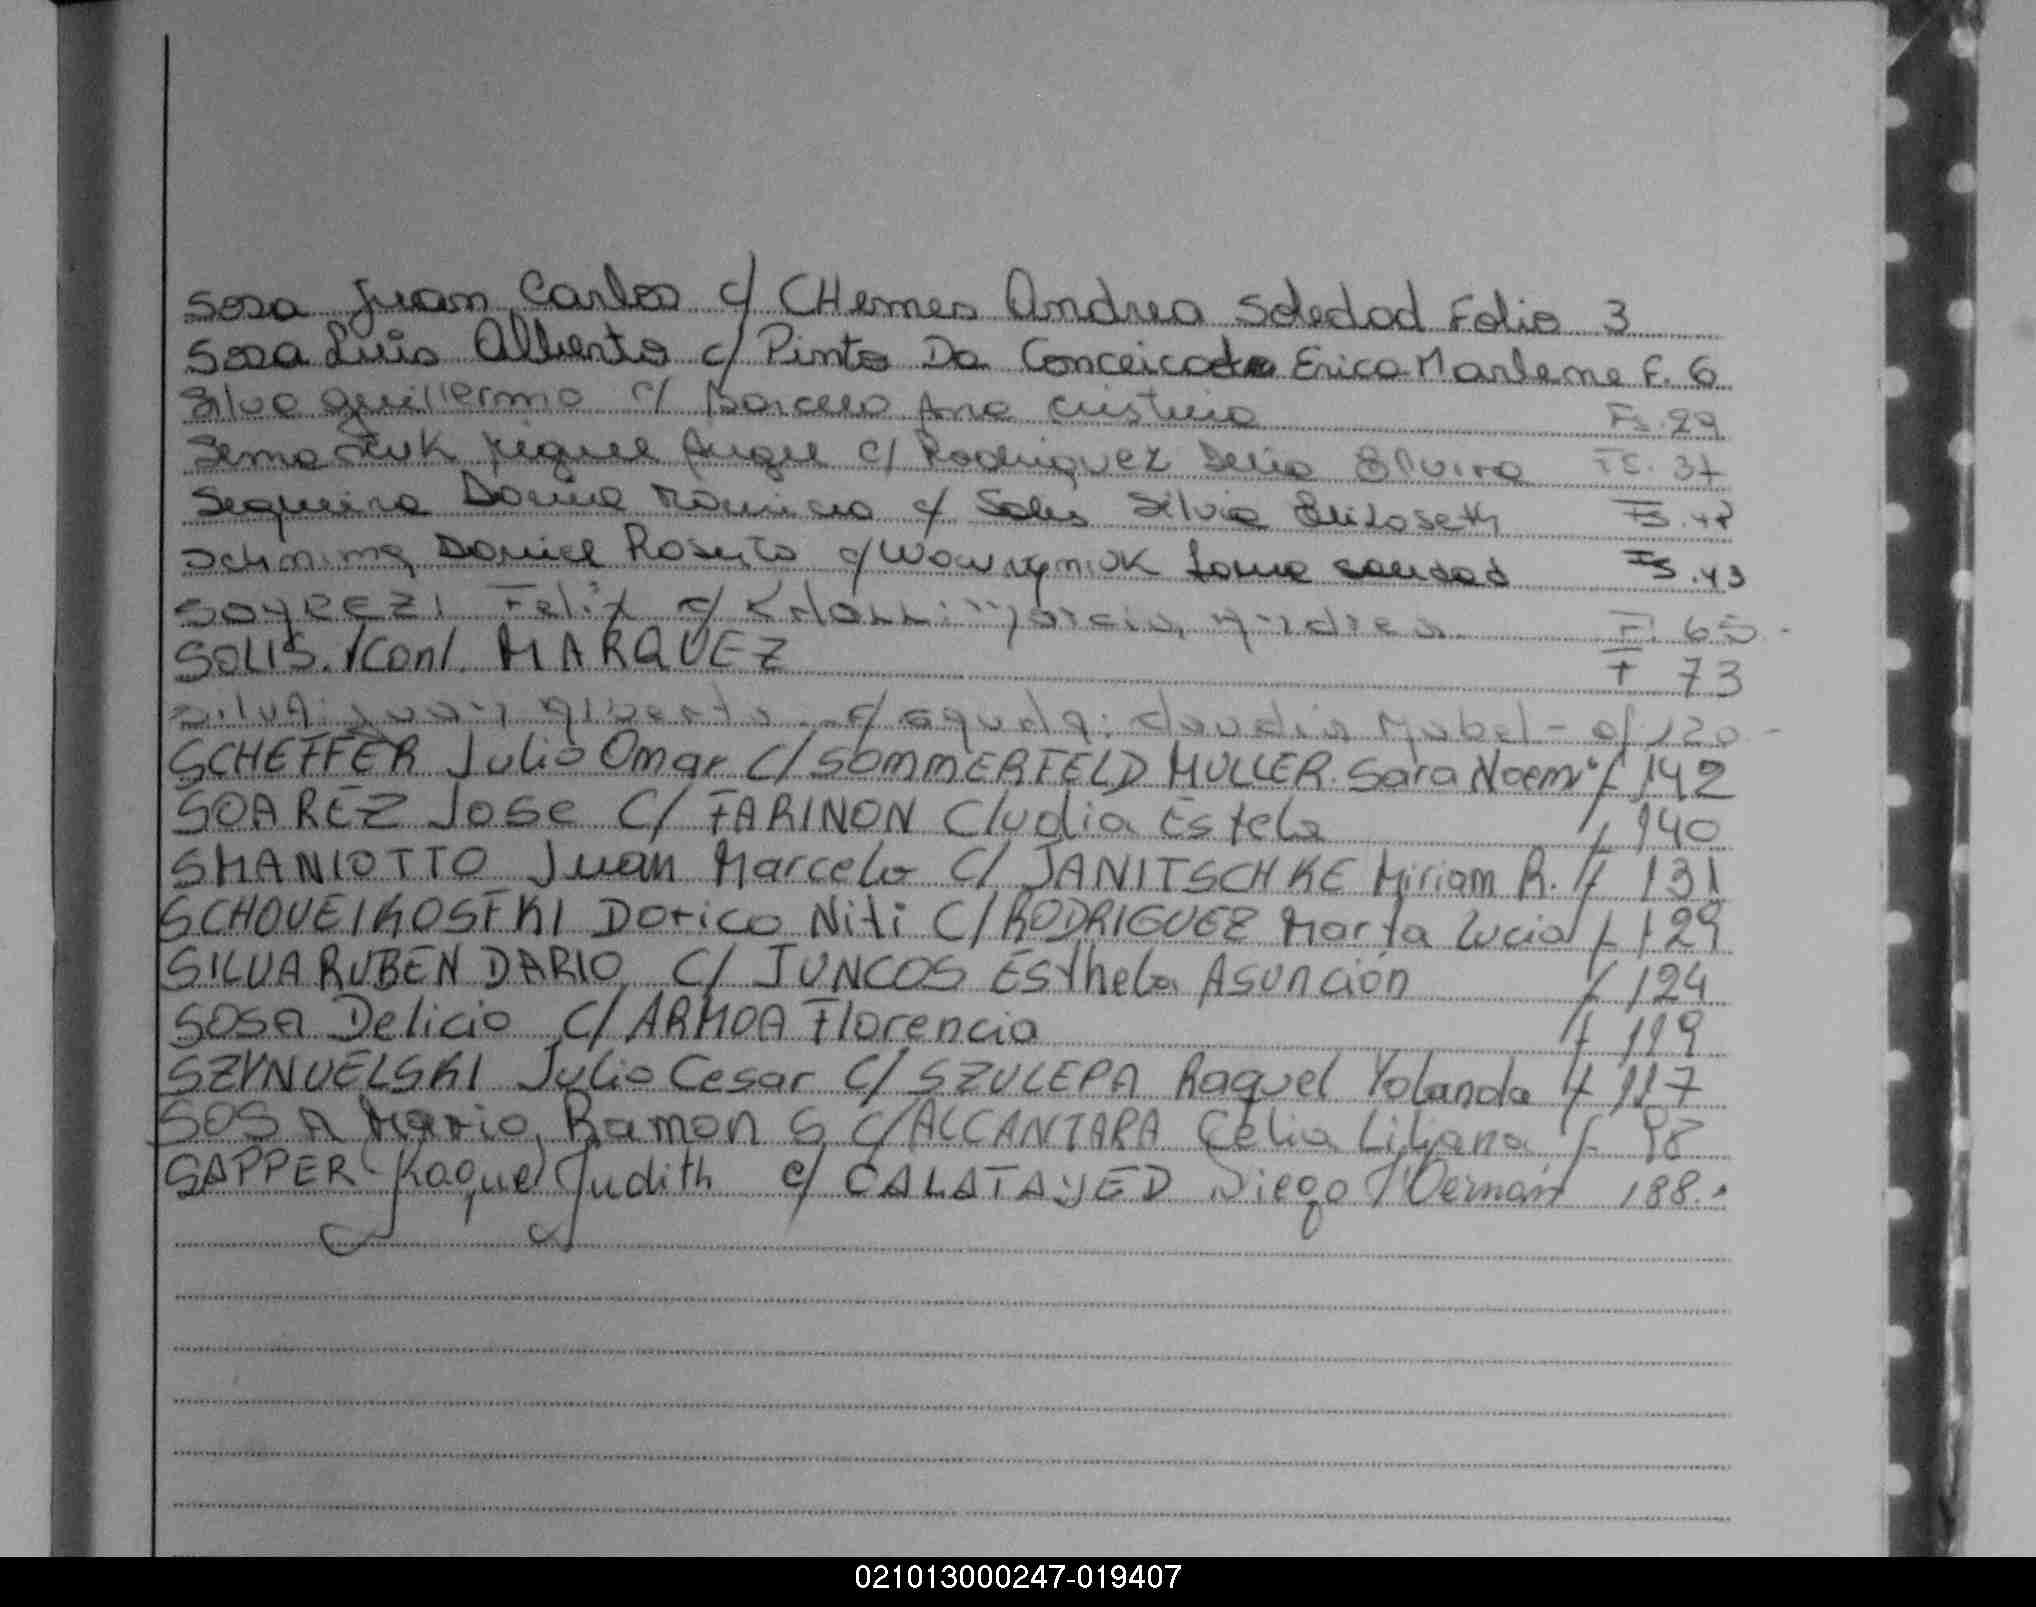 Sosa Juan Carlos c/ CHemes Andrea Soledad Folio 3
Sosa Luis Alberto c/ Pinto Da Erica Marlene F. 6
Silva Guillermo c/ Barcelo Ana Cristina Fs. 29
Miguel Angel c/ Rodriguez Delia Elvira Fs. 37
Sequeira Mauricio c/ Solis Silvia Elizabeth Fs.
Daniel Roberto c/ Fs. 43
Felix c/ Andrea F. 65
SOLIS. /Con/. MARQUEZ F 73
Silva: Juan Alberto c/ Claudia Mabel - 120 -
SCHEFFER Julio Omar C/ SOMMERFELD MULLER Sara Noemi f 142
SOAREZ Jose C/ FARINON Cludia Estela f 140
SMANIOTTO Juan Marcelo C/ JANITSCHKE Miriam R. f 131
Niti C/ RODRIGUEZ Marta Lucia f 129
SILVA RUBEN DARIO C/ JUNCOS Esthela Asunción f 124
SOSA Delicio C/ ARMOA Florencia f 119
SZYNVELSKI Julio Cesar C/ SZULEPA Raquel Yolanda f 117
SOSA Mario Ramon S C/ ALCANTARA Celia Liliana f 98
SAPPER Raquel Judith c/ CALATAYED Diego Hernan 188.
021013000247-019407